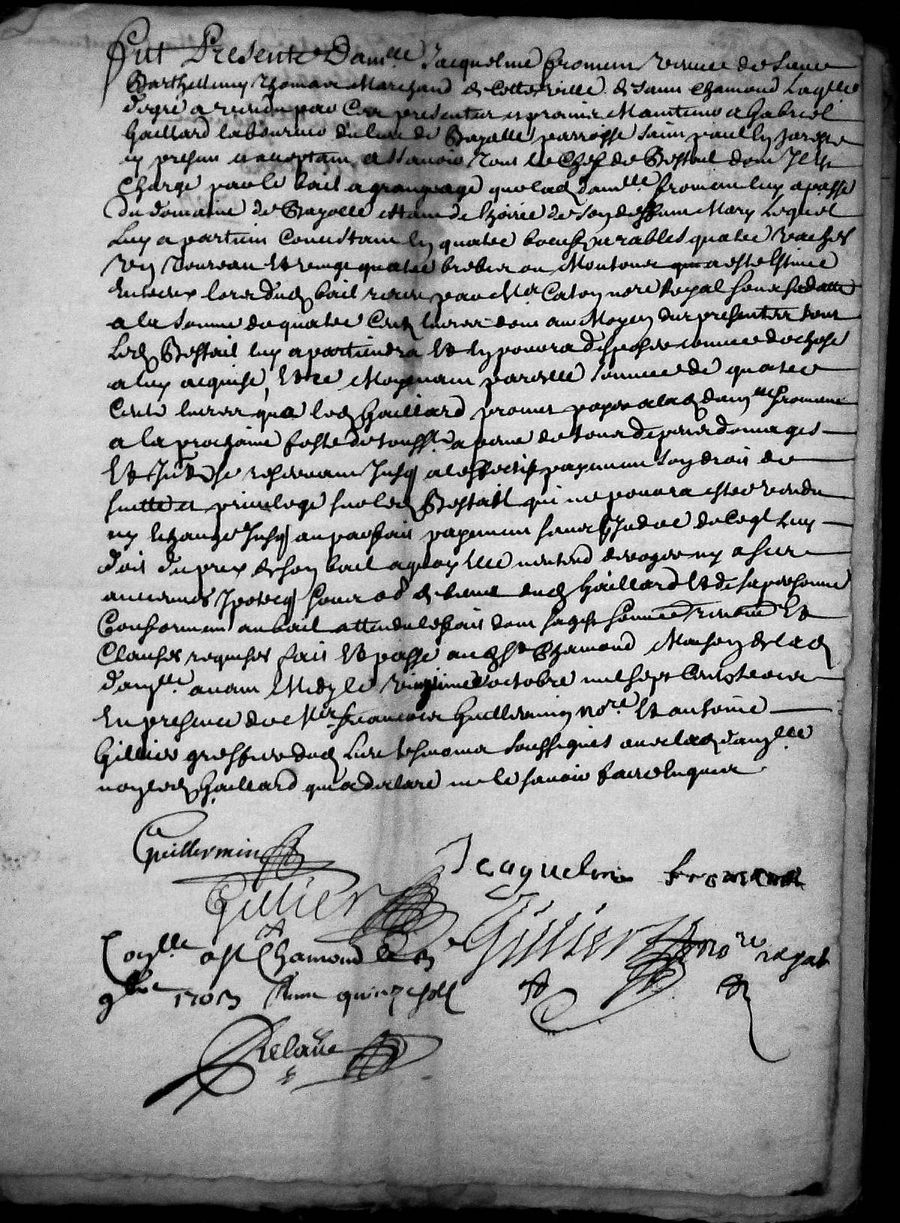 Fut Presente Dam.lle Jacquelme fromen veuve de sieur
Barthellemy thomas Marchand de cette ville de sainct chamond Laq.lle
degré a vendu par ces presentes et promis Maintenir a Gabriel
Gaillard laboureur du lieu de Bayolle parroisse sainct paul en Jarest
cy presant et acceptant, assavoir tout le de Bestail dont Il est
Chargé par le bail a grangeage que lad dam.lle fromen luy a passé
du domaine de Bayolle estant de de son deffunt Mary Lequel
Luy apartien Consistant en quatre boeufs arables quatre vaches
un toureau Et vingt quatre brebis ou Moutons qui a esté estimé
Entr'eux lors dud bail receu par M.e Caton no.re Royal sous sa datte
a la somme de quatre Cent livres dont au Moyen des presentes tout
Led Bestail luy apartiendra Et en pourra disposer comme de chose
a luy acquise, Et ce Moyenant pareille somme de quatre
Cent livres que led Gaillard promet payer a lad dam.lle fromen
a la prochaine feste de touss.ts a peine de tous depens domages
Et Int. se reservant Jusq a l'effectif payement son droit de
suitte et privilege sur led Bestail qui ne pourra estre vendu
ny Echangé Jusq au parfait payement sans de ce q.l luy
doit du prix de son bail a quoy elle n'entend deroger ny a ses
antiennes Ipoteq sous ob de biens dud Gaillard Et de sa personne
Conformem au bail attendu le fait dont sagit Et
Clauses requises fait Et passé aud S.t Chamond Maison de lad
dam.lle avant Midy le octobre mil sept Cent trois
En presence de M.re francois Guillermin no.re Et antoine
Gillier greffier dud Lieu tesmoins soussignés avec lad dam.lle
non led Gaillard qui a declaré ne le savoir faire enquis
Guillermin
Jcaquelme fromen
Gillier
Gillier no.re royal
Con.lle a S.t Chamond le
9bre 1703 quinze sols
Delasse